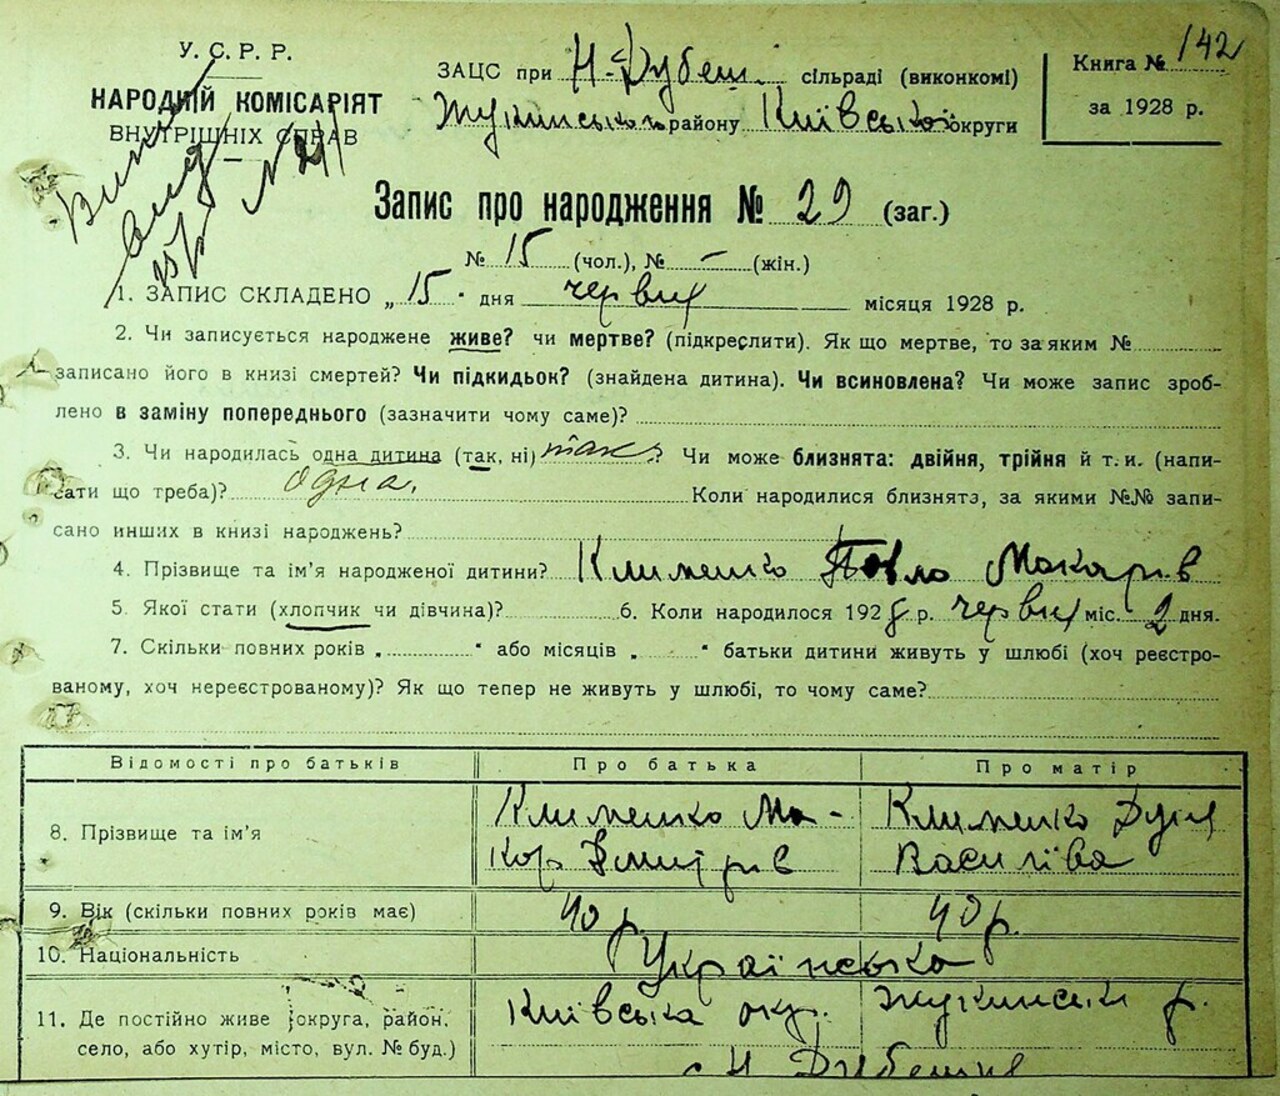 У. С. Р. Р.
НАРОДНІЙ КОМІСАРІЯТ
ВНУТРІШНІХ СПРАВ
ЗАЦС при Н-Дубеш. сільраді (виконкомі)
Жукинського району Київської округи
Книга № 142
за 1928 р.
Запис про народження № 29 (заг.)
№ 15 (чол.), № – (жін.)
1. ЗАПИС СКЛАДЕНО „ 15 " дня червня місяця 1928 р.
2. Чи записується народжене живе? чи мертве? (підкреслити). Як що мертве, то за яким №
записано його в книзі смертей? Чи підкидьок? (знайдена дитина). Чи всиновлена? Чи може запис зроб-
лено в заміну попереднього (зазначити чому саме)?
3. Чи народилась одна дитина (так, ні) так? Чи може близнята: двійня, трійня й т. и. (напи-
сати що треба)? одна. Коли народилися близнята, за якими №№ запи-
сано инших в книзі народжень?
4. Прізвище та ім'я народженої дитини? Клименко Павло Макарів
5. Якої стати (хлопчик чи дівчина)? 6. Коли народилося 1928 р. червня міс. 2 дня.
7. Скільки повних років „ " або місяців „ " батьки дитини живуть у шлюбі (хоч реєстро-
ваному, хоч нереєстрованому)? Як що тепер не живуть у шлюбі, то чому саме?
Відомості про батьків Про батька Про матір
8. Прізвище та ім'я Клименко Ма- Клименко
кар Дмитрів Василіва
9. Вік (скільки повних років має) 40 р. 40 р.
10. Національність Українська
11. Де постійно живе (округа, район, Київська окр. Жукинськ р.
село, або хутір, місто, вул. № буд.) с. Н Дубешня